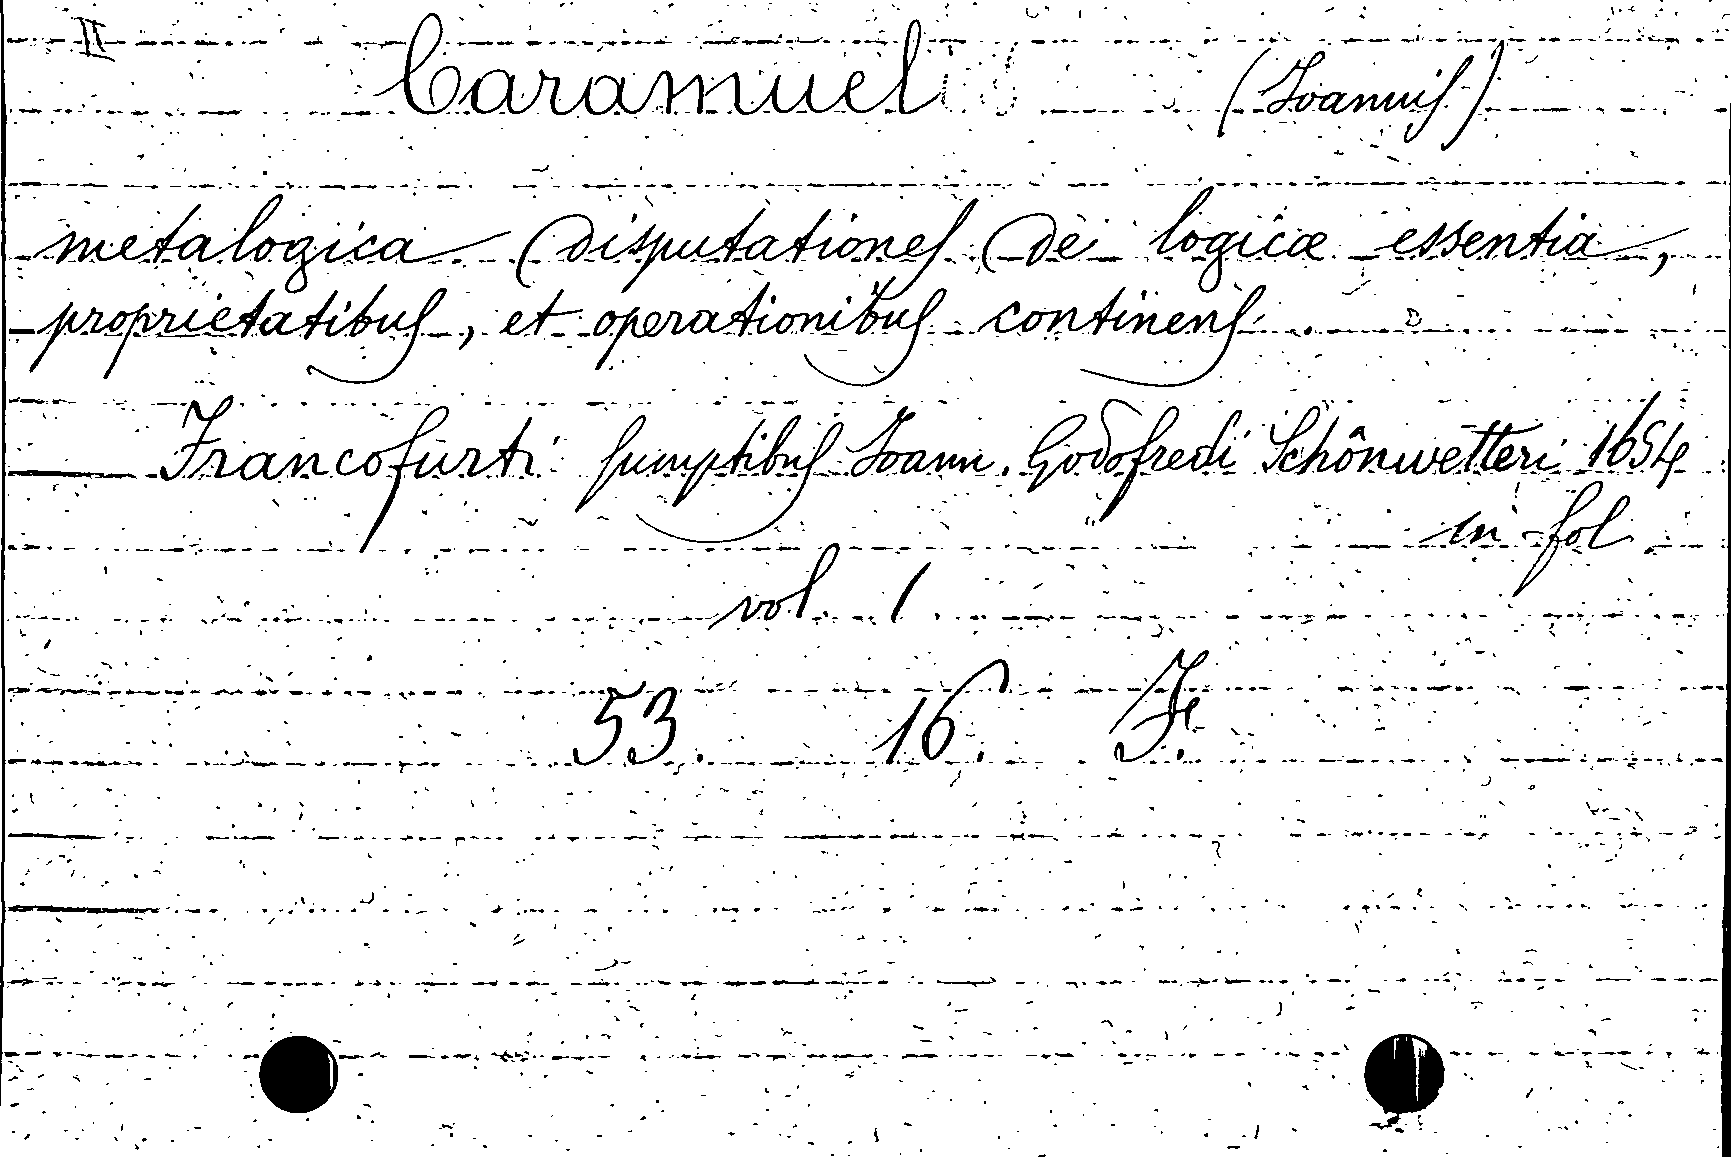 II
Caramuel (Joannis)
metalogica disputationes de logicæ essentia,
proprietatibus, et operationibus continens.
Francofurti sumptibus Joann. Godofredi Schônwetteri 1654
in fol.
vol. 1.
53. 16. F.